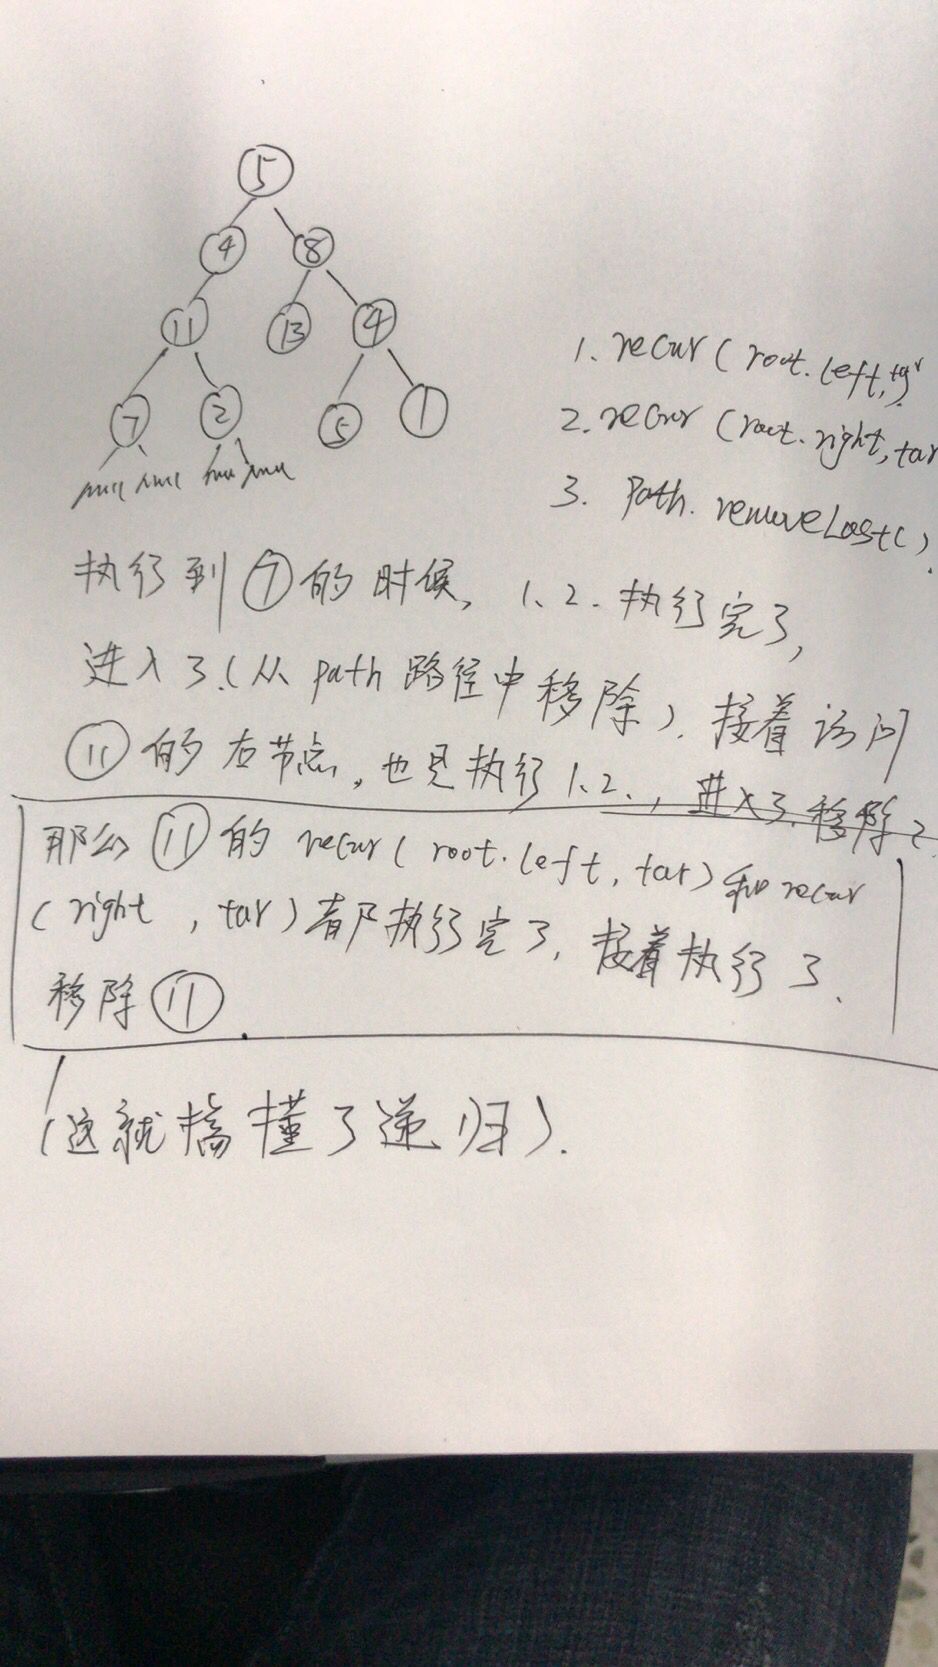 5
4 8
11 13 4
1. recur (root.left, tar
7 2 5 1
2. recur (root.right, tar
null null null null
3. Path. removeLast().
执行到⑦的时候, 1、2. 执行完了,
进入3.(从path路径中移除). 接着访问
⑪的右节点, 也是执行1、2., 进入3.移除2
那么⑪的recur(root.left, tar)和recur
(right , tar)都执行完了, 接着执行3.
移除⑪.
(这就搞懂了递归).